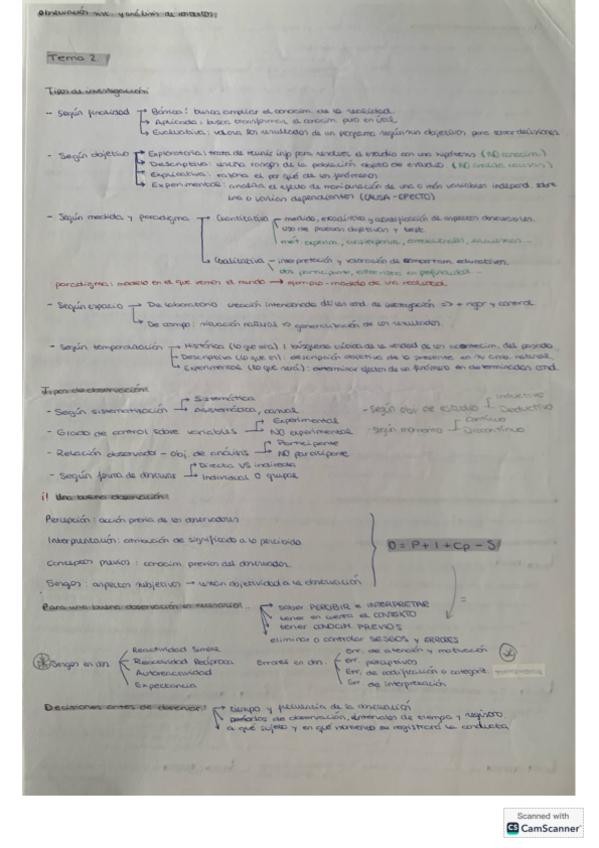 Observación sist. y análisis de contextos
Tema 2
Tipos de investigación:
- Según finalidad → Básica: busca ampliar el conocim. de la realidad.
→ Aplicada: busca transformar el conocim. puro en útil.
→ Evaluativa: valora los resultados de un programa según sus objetivos para tomar decisiones.
- Según objetivo → Exploratoria: trata de reunir info para el estudio con una hipótesis (NO conocim.)
→ Descriptiva: rasgos de la población objeto de estudio (NO analiza causas)
→ Explicativa: razona el por qué de un fenómeno
→ Experimental: analiza el efecto de manipulación de una o más variables independ. sobre
una o varias dependientes (CAUSA-EFECTO)
- Según medida y paradigma → Cuantitativa - medida, y cuantificación de aspectos observables.
uso de pruebas objetivas y test.
→ Cualitativa - interpretación y valoración de comportam. educativos.
obs participante, entrevistas en profundidad...
paradigma: modelo en el que vemos el mundo → ejemplo-modelo de una realidad
- Según espacio → De laboratorio: creación intencionada de las cond. de investigación => + rigor y control.
→ De campo: situación natural => generalización de los resultados.
- Según temporalización → Histórica (lo que era): búsqueda crítica de la verdad de los acontecim. del pasado.
→ Descriptiva (lo que es): descripción objetiva de lo presente en su amb. natural.
→ Experimental (lo que será): determinar efectos de un fenómeno en determinadas cond.
Tipos de observación:
- Según sistematización → Sistemática
→ Asistemática, casual
- Según obj. de estudio Inductivo
Deductivo
- Grado de control sobre variables → Experimental
→ NO experimental
- Según momento Continuo
Discontinuo
- Relación observador - obj. de análisis → Participante
→ NO participante
- Según forma de observar → Directa VS indirecta
→ Individual o grupal
¡! Una buena observación:
Percepción: acción previa de los observadores
Interpretación: atribución de significado a lo percibido
O = P + I + Cp - S
Conceptos previos: conocim. previos del observador
Sesgos: aspectos subjetivos → objetividad a la observación
=
Para una buena observación es necesario... → saber PERCIBIR e INTERPRETAR
→ tener en cuenta el CONTEXTO
→ tener CONOCIM. PREVIOS
eliminar o controlar SESGOS y ERRORES
Sesgos en obs. Reactividad Simple
Reactividad Recíproca
Autoreactividad
Expectancia
Errores en obs. Err. de atención y motivación
Err. perceptivos
Err. de codificación o categoriz.
Err. de interpretación
Decisiones antes de observar: → tiempo y frecuencia de la observación
→ periodos de observación, intervalos de tiempo y registro
→ a qué sujeto y en qué momento se registrará la conducta
Scanned with
CS CamScanner